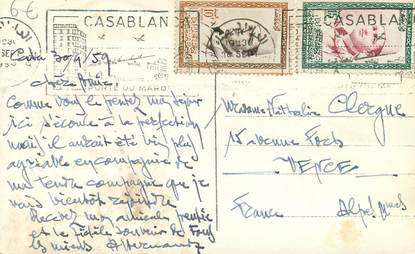 6€
CASABLANCA
CASABLAN
PORTE DU MAROC
Casa 30/9/59
Chère Amie,
Comme vous le pensez mon séjour
ici s'écoule à la perfection
il aurait été bien plus
agréable en compagnie de
ma tendre compagne que je
vais bientôt rejoindre
Recevez mon amicale pensée
et le fidèle souvenir de
les miens Hernandez
Madame Nathalie Clergue
15 avenue Foch
VENCE
France Alpes Mmes